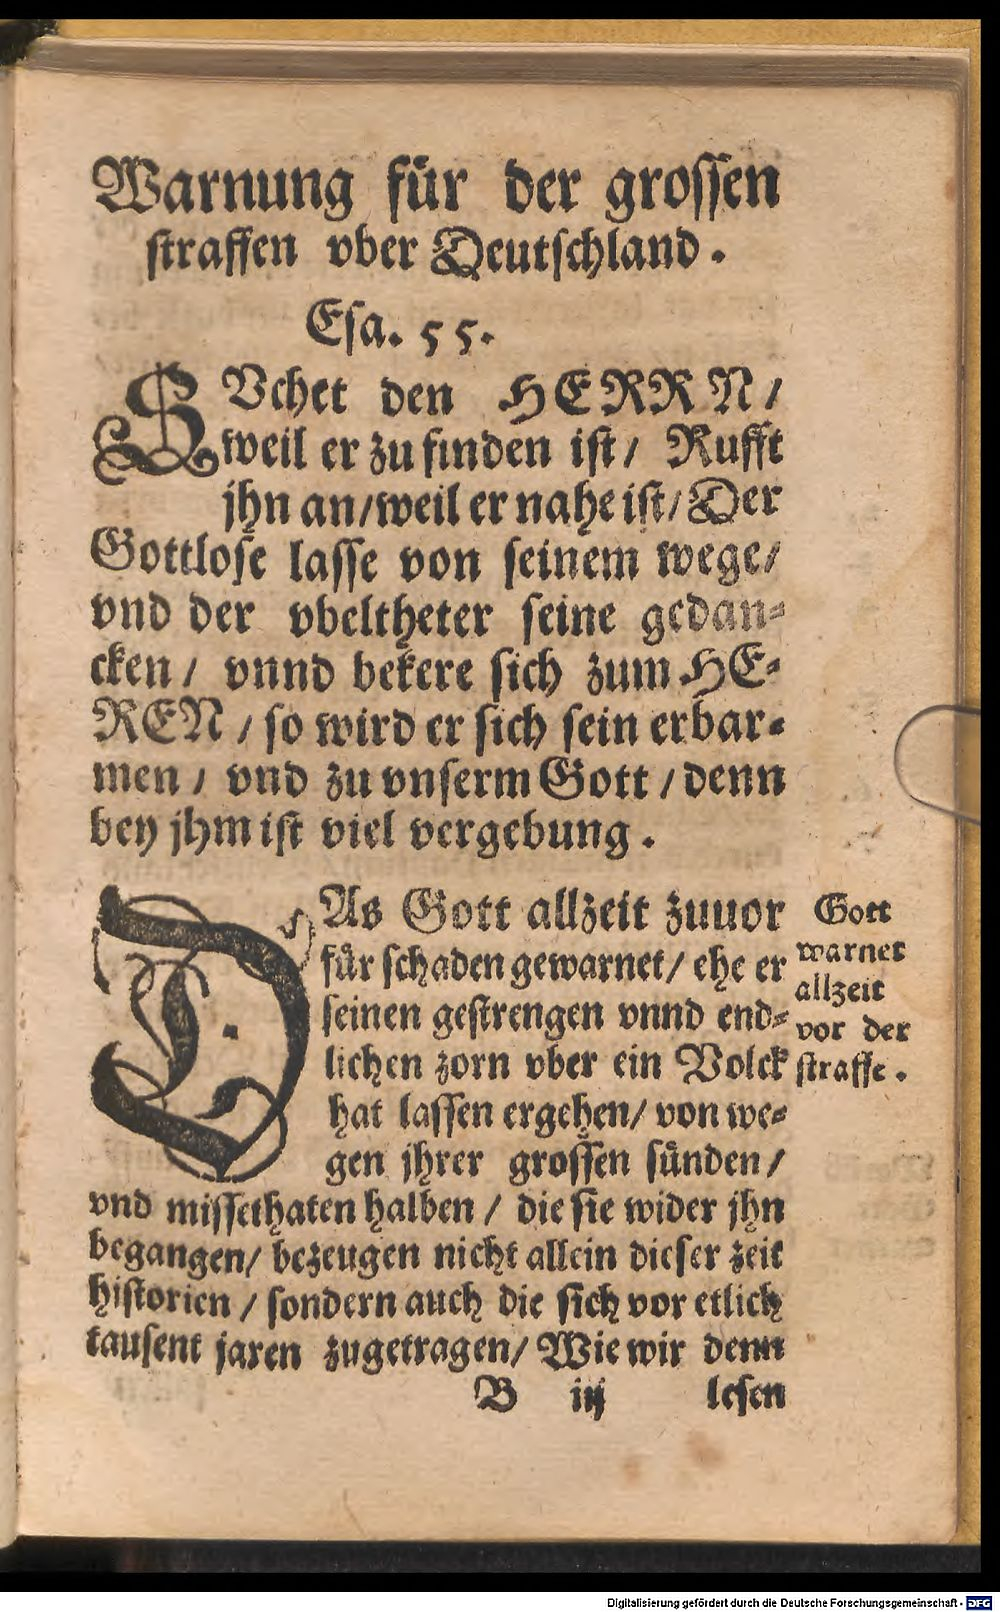 Warnung für der grossen
straffen vber Deutschland.
Esa. 55.
SVchet den HERRN/
weil er zu finden ist/ Rufft
jhn an/weil er nahe ist/Der
Gottlose lasse von seinem wege/
vnd der vbeltheter seine gedan-
cken/ vnnd bekere sich zum HE-
REN/so wird er sich sein erbar-
men/ vnd zu vnserm Gott/denn
bey jhm ist viel vergebung.
DAs Gott allzeit zuuor
für schaden gewarnet/ ehe er
seinen gestrengen vnnd end-
lichen zorn vber ein Volck
hat lassen ergehen/ von we-
gen jhrer grossen sünden/
vnd missethaten halben/ die sie wider jhn
begangen/ bezeugen nicht allein dieser zeit
historien/ sondern auch die sich vor etlich
tausent jaren zugetragen/ Wie wir denn
B iij lesen
Gott
warnet
allzeit
vor der
straffe.
Digitalisierung gefördert durch die Deutsche Forschungsgemeinschaft - DFG